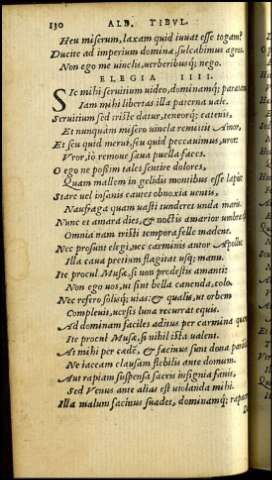 130 ALB. TIBVL.
Heu miserum, laxam quid iuuat esse togam?
Ducite ad imperium dominæ, sulcabimus agros,
Non ego me uinclis, uerberibusq; nego.
ELEGIA IIII.
SIc mihi seruitium video, dominamq; paratam
Iam mihi libertas illa paterna uale.
Seruitium sed triste datur, teneorq; catenis,
Et nunquam misero uincla remittit Amor,
Et seu quid merui, seu quid peccauimus, uror:
Vror, iô remoue sæua puella faces.
O ego ne possim tales sentire dolores,
Quàm mallem in gelidis montibus esse lapis:
Stare uel insanis cautes obnoxia uentis,
Naufraga quam uasti tunderet unda maris.
Nunc et amara dies, & noctis amarior umbra est,
Omnia nam tristi tempora felle madent.
Nec prosunt elegi, nec carminis autor Apollo:
Illa caua pretium flagitat usq; manu.
Ite procul Musæ, si non prodestis amanti:
Non ego uos, ut sint bella canenda, colo.
Nec refero solisq; uias: & qualis, ut orbem
Compleuit, uersis luna recurrat equis.
Ad dominam faciles aditus per carmina quæro
Ite procul Musæ, si nihil ista ualent.
At mihi per cædẽ, & facinus sunt dona paranda
Ne iaceam clausam flebilis ante domum.
Aut rapiam suspensa sacris insignia fanis,
Sed Venus ante alias est uiolanda mihi.
Illa malum facinus suadet, dominamq; rapacem